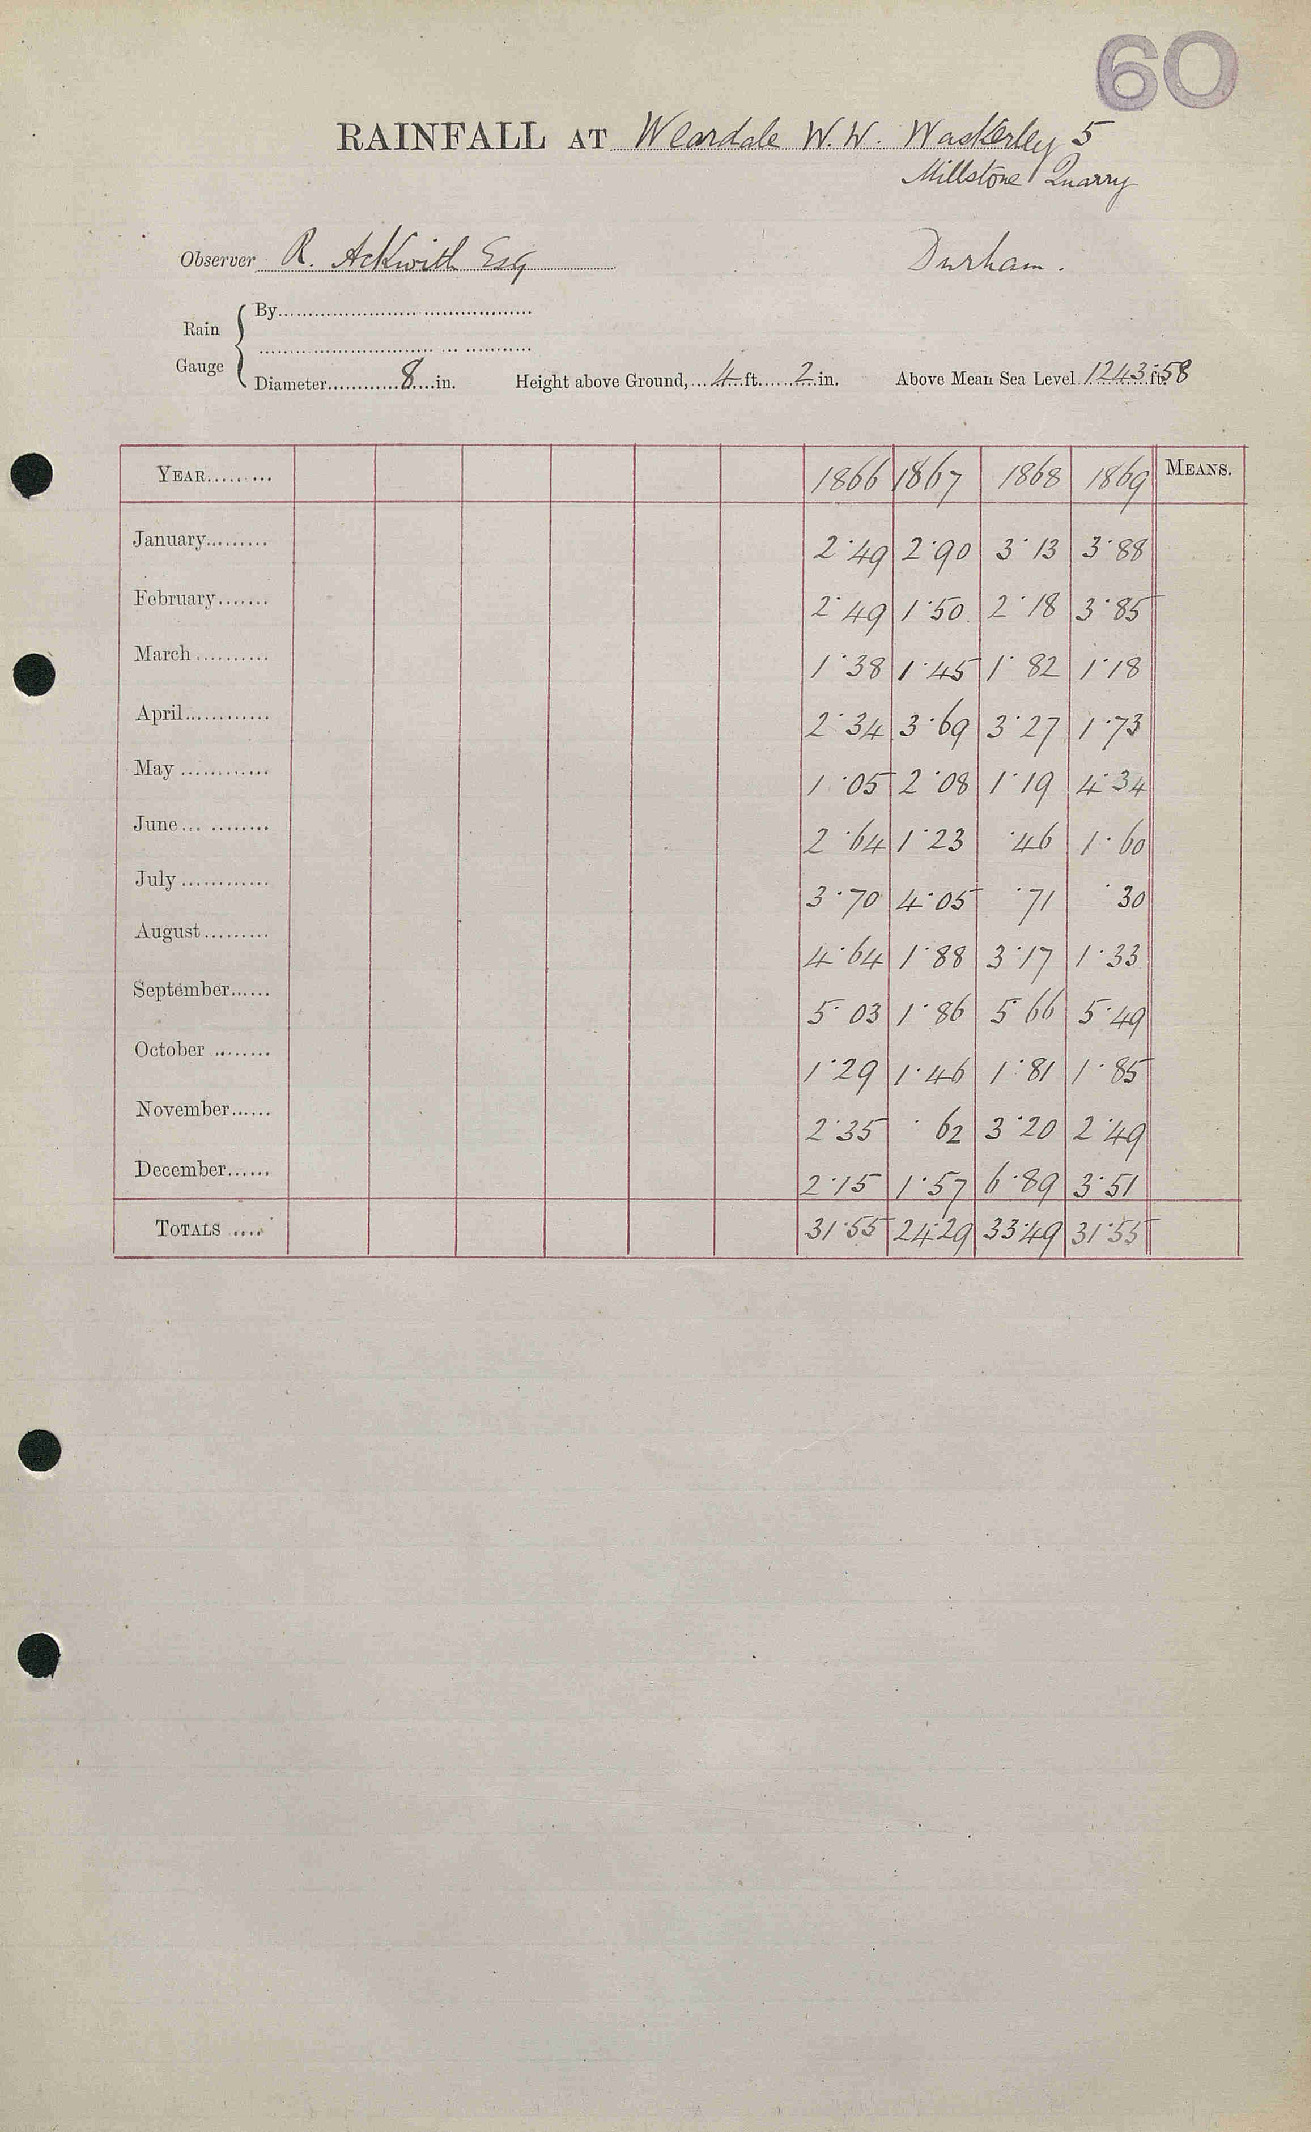 60
RAINFALL AT Weardale W.W. Waskerley 5
Millstone Quarry
Observer R. Askwith Esq Durham.
Rain Gauge
By
Diameter 8 in. Height above Ground, 4 ft. 2 in. Above Mean Sea Level 1243·58 ft.
YEAR 1866 1867 1868 1869 MEANS.
January 2·49 2·90 3·13 3·88
February 2·49 1·50 2·18 3·85
March 1·38 1·45 1·82 1·18
April 2·34 3·69 3·27 1·73
May 1·05 2·08 1·19 4·34
June 2·64 1·23 ·46 1·60
July 3·70 4·05 ·71 ·30
August 4·64 1·88 3·17 1·33
September 5·03 1·86 5·66 5·49
October 1·29 1·46 1·81 1·85
November 2·35 ·62 3·20 2·49
December 2·15 1·57 6·89 3·51
TOTALS 31·55 24·29 33·49 31·55